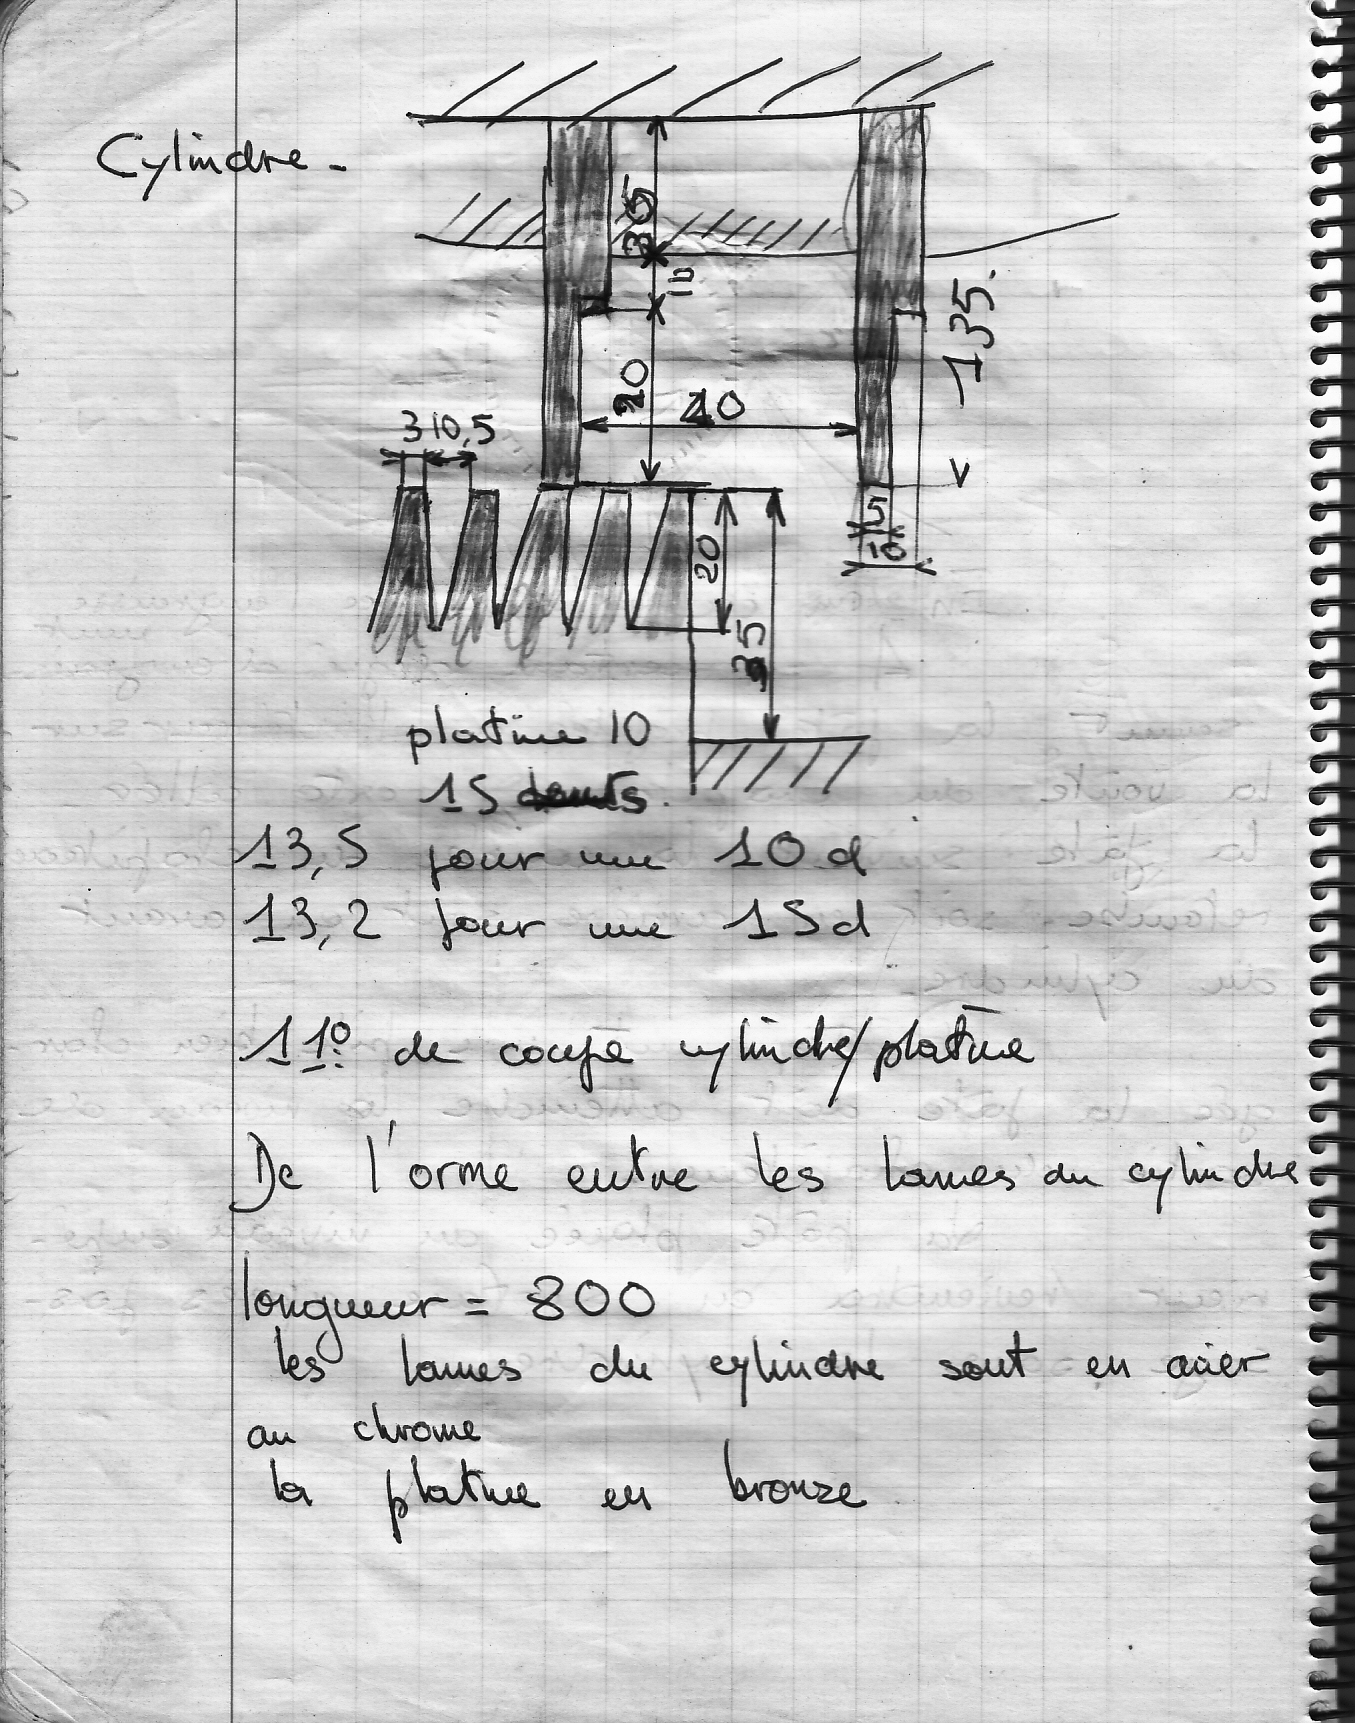 Cylindre -
36
10
135.
20
40
3 10,5
5
10
20
35
platine 10
15
13,5 pour une 10 d
13,2 pour une 15 d
11° de coupe cylindre/platine
De l'orme entre les lames du cylindre
longueur = 800
les lames du cylindre sont en acier
au chrome
la platine en bronze